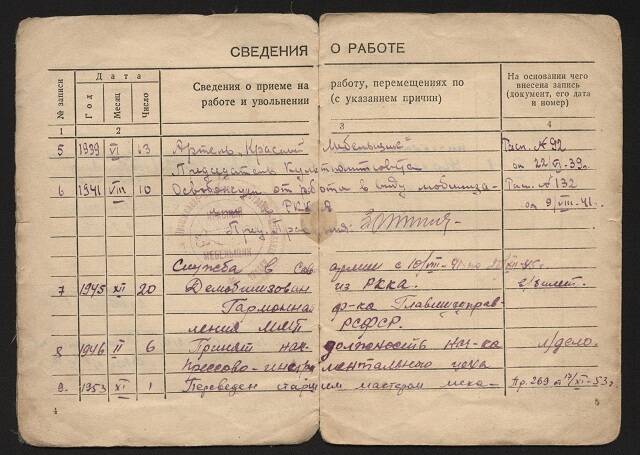 СВЕДЕНИЯ О РАБОТЕ
№ записи
Дата
Год
Месяц
Число
Сведения о приеме на работу, перемещениях по
работе и увольнении (с указанием причин)
На основании чего
внесена запись
(документ, его дата
и номер)
1 2 3 4
5 1939 VI 13 Артель „Красный Мебельщик" № 92
Председатель от 22 VI-39г.
6 1941 VIII 10 Освобожден от работы в виду мобилиза- № 132
РККА от 9/VIII-41г.
МЕБЕЛЬЩИК
Служба в армии с
7 1945 XII 20 Демобилизован из РККА. в/билет.
Гармонная ф-ка
РСФСР.
8 1946 II 6 Принят на должность нач-ка л/дело.
прессово-инструментального цеха
9. 1953 XI 1 Переведен старшим мастером меха- Пр. 269 от 17/XI-53г.
4 5